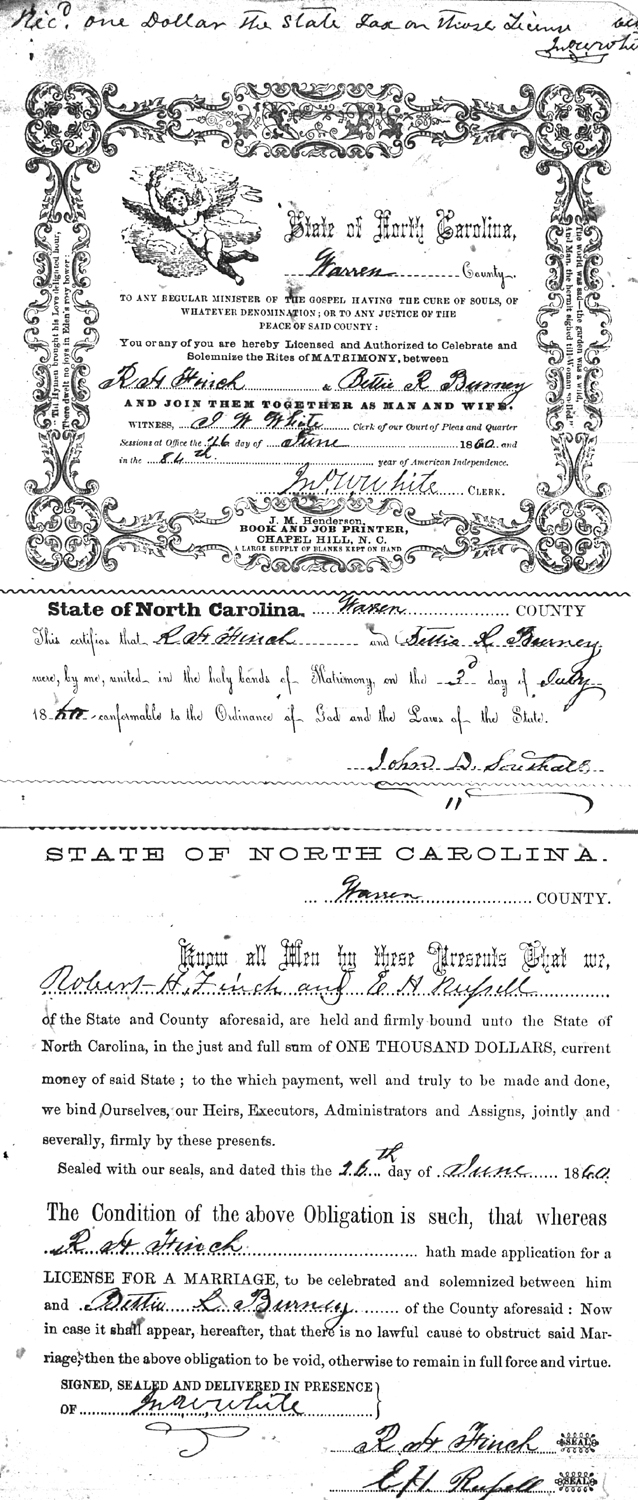 Rec'd. one Dollar the State Tax on those License
Jno W White
State of North Carolina,
Warren County.
"The Hymen brought his Love-delighted hour,
There dwelt no joys in Eden's rosy bower;
The world was sad—the garden was a wild,
And Man, the hermit sighed till Woman smiled."
TO ANY REGULAR MINISTER OF THE GOSPEL HAVING THE CURE OF SOULS, OF
WHATEVER DENOMINATION; OR TO ANY JUSTICE OF THE
PEACE OF SAID COUNTY:
You or any of you are hereby Licensed and Authorized to Celebrate and
Solemnize the Rites of MATRIMONY, between
R H Finch & Bettie R Burney
AND JOIN THEM TOGETHER AS MAN AND WIFE.
WITNESS, J W White Clerk of our Court of Pleas and Quarter
Sessions at Office the 26 day of June 1860 and
in the 84th year of American Independence.
Jno W White CLERK.
J. M. Henderson,
BOOK AND JOB PRINTER,
CHAPEL HILL, N. C.
A LARGE SUPPLY OF BLANKS KEPT ON HAND
State of North Carolina. Warren COUNTY
This certifies that R H Finch and Bettie L Burney
were, by me, united in the holy bonds of Matrimony, on the 3d day of July
1860 conformable to the Ordinance of God and the Laws of the State.
John D. Southall
STATE OF NORTH CAROLINA.
Warren COUNTY.
Know all Men by these Presents That we,
Robert H. Finch and E H Russell
of the State and County aforesaid, are held and firmly bound unto the State of
North Carolina, in the just and full sum of ONE THOUSAND DOLLARS, current
money of said State; to the which payment, well and truly to be made and done,
we bind Ourselves, our Heirs, Executors, Administrators and Assigns, jointly and
severally, firmly by these presents.
Sealed with our seals, and dated this the 26th day of June 1860.
The Condition of the above Obligation is such, that whereas
R H Finch hath made application for a
LICENSE FOR A MARRIAGE, to be celebrated and solemnized between him
and Bettie L Burney of the County aforesaid: Now
in case it shall appear, hereafter, that there is no lawful cause to obstruct said Mar-
riage, then the above obligation to be void, otherwise to remain in full force and virtue.
SIGNED, SEALED AND DELIVERED IN PRESENCE
OF Jno W White
R H Finch SEAL
E. H. Russell SEAL